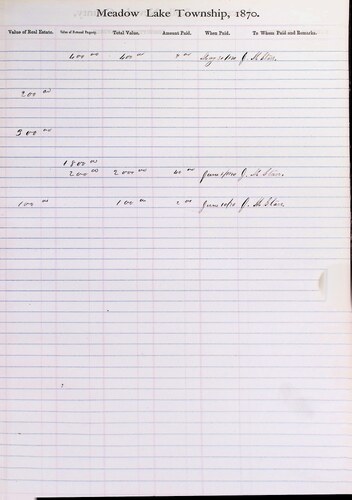 Meadow Lake Township, 1870.
Value of Real Estate. Value of Personal Property. Total Value. Amount Paid. When Paid. To Whom Paid and Remarks.
400 00 400 00 J. H.
200 00
500 00
1800 00
200 00 2000 00 40 00 June J. H.
100 00 100 00 2 00 June J. H.